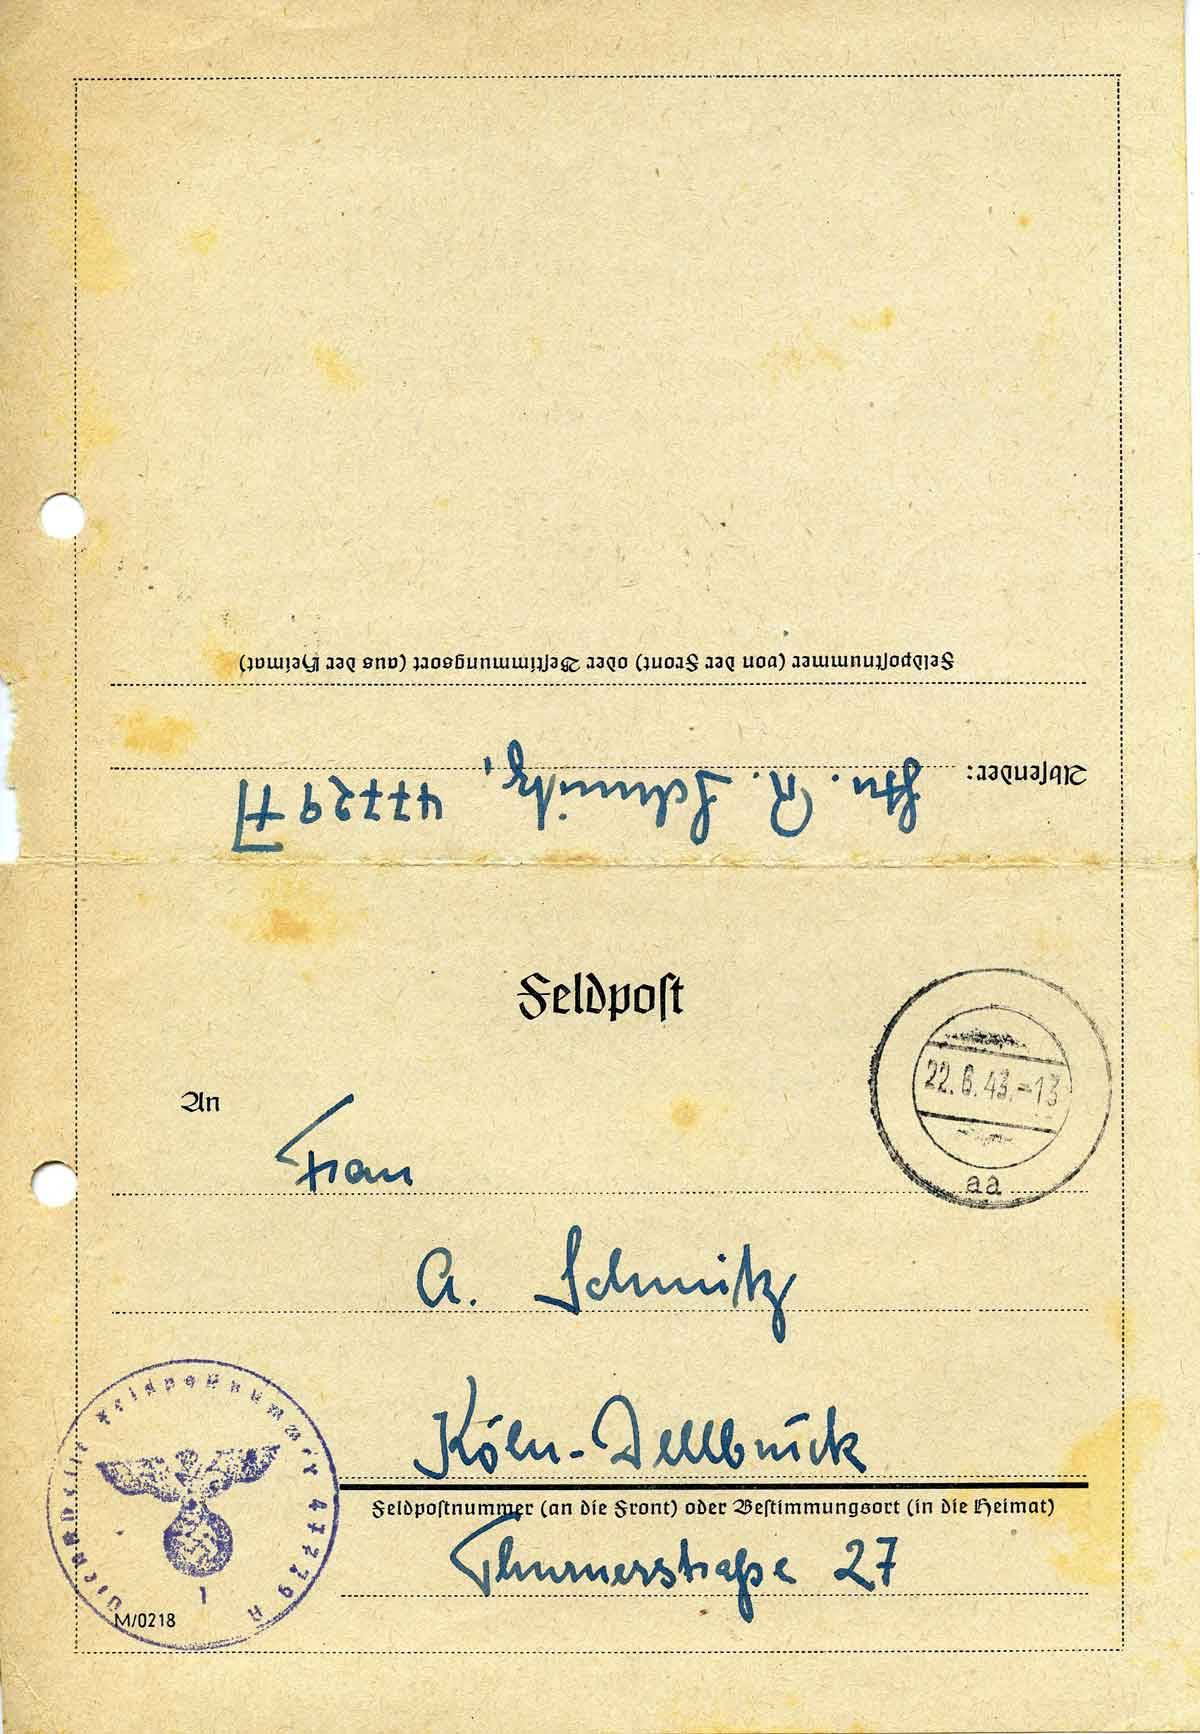 Feldpostnummer (von der Front) oder Bestimmungsort (aus der Heimat)
Absender: R. Schmitz, 47729 A
Feldpost
22.6.43.-13
aa
An
Frau
A. Schmitz
Köln-Dellbrück
Feldpostnummer (an die Front) oder Bestimmungsort (in die Heimat)
Thurnerstraße 27
Dienststelle Feldpostnummer 47729 A
M/0218